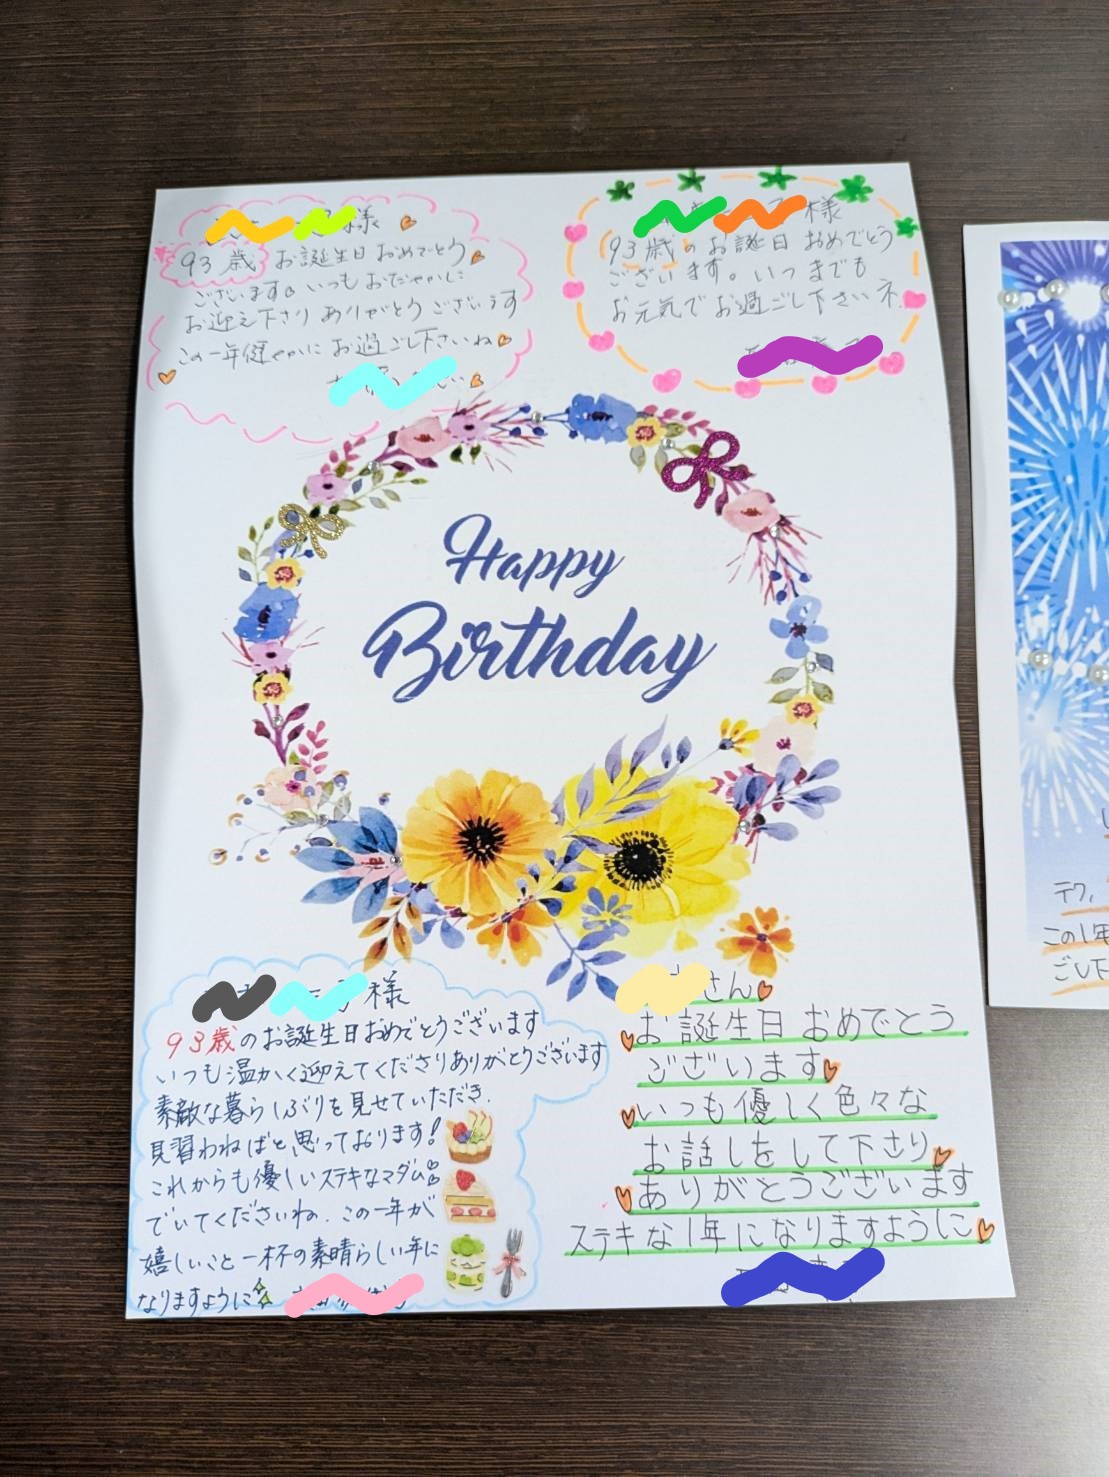 様
93歳 お誕生日おめでとう
ございます。いつもおだやかに
お迎え下さりありがとうございます
この一年健やかにお過ごし下さいね
様
93歳のお誕生日おめでとう
ございます。いつまでも
お元気でお過ごし下さいネ.
Happy
Birthday
様
93歳のお誕生日おめでとうございます
いつも温かく迎えてくださりありがとうございます
素敵な暮らしぶりを見せていただき.
見習わねばと思っております!
これからも優しいステキなマダム
でいてくださいね. この一年が
嬉しいこと一杯の素晴らしい年に
なりますように
さん
お誕生日おめでとう
ございます
いつも優しく色々な
お話しをして下さり
ありがとうございます
ステキな1年になりますように
この1年